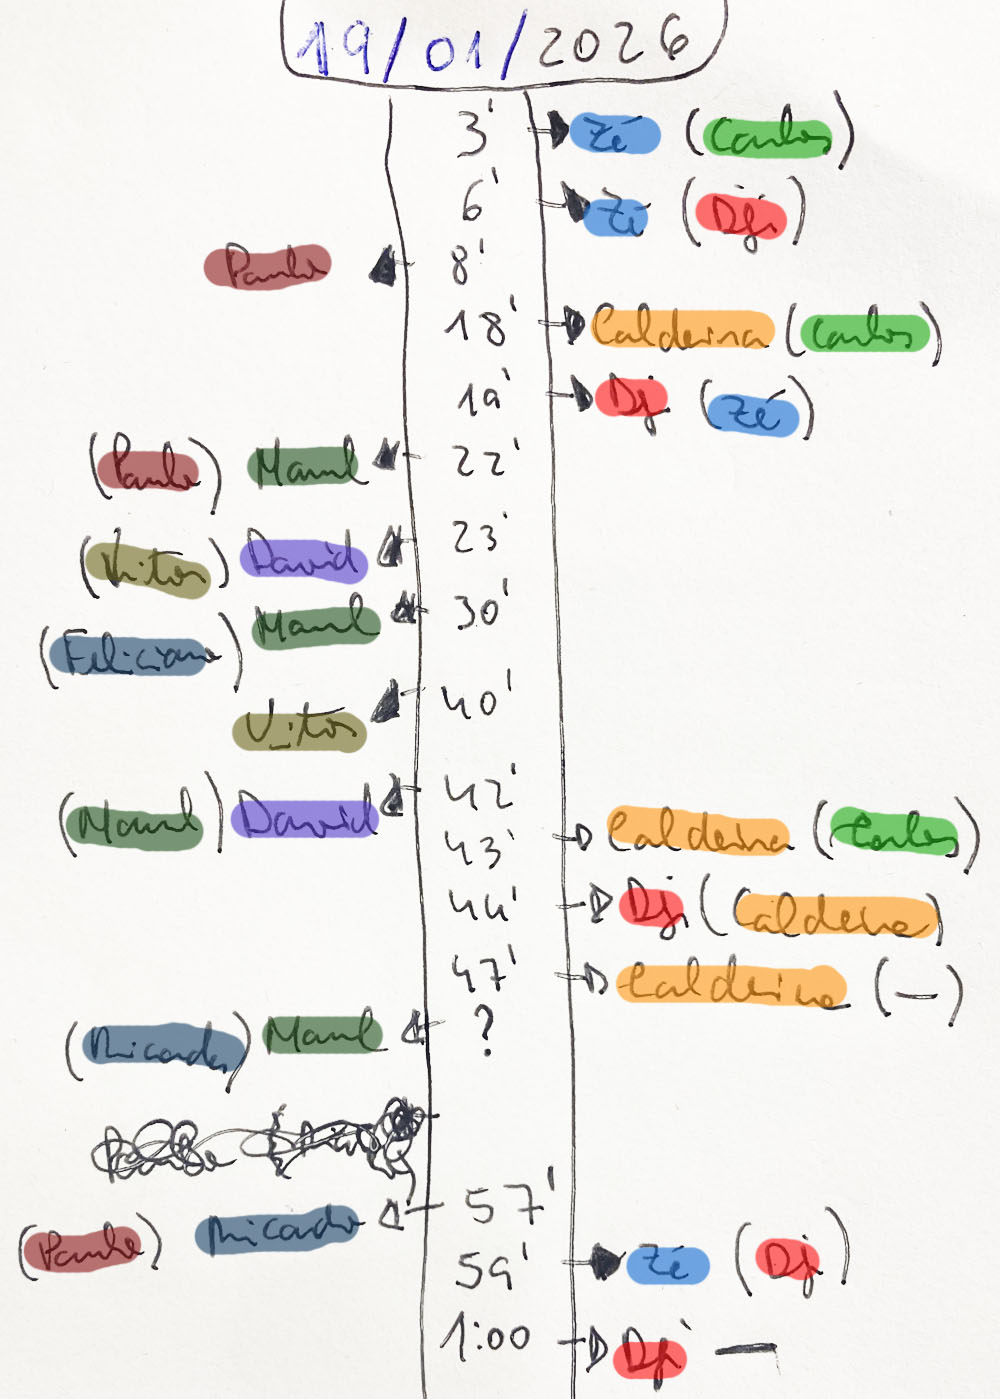 19/01/2026
3' Zé (Carlos)
6' Zé (Dji)
Paulo 8'
18' Caldeira (Carlos)
19' Dji (Zé)
(Paulo) Manel 22'
(Vitor) David 23'
(Feliciano) Manel 30'
Vitor 40'
(Manel) David 42'
43' Caldeira (Carlos)
44' Dji (Caldeira)
47' Caldeira (—)
(Ricardo) Manel ?
(Paulo) Ricardo 57'
59' Zé (Dji)
1:00 Dji —